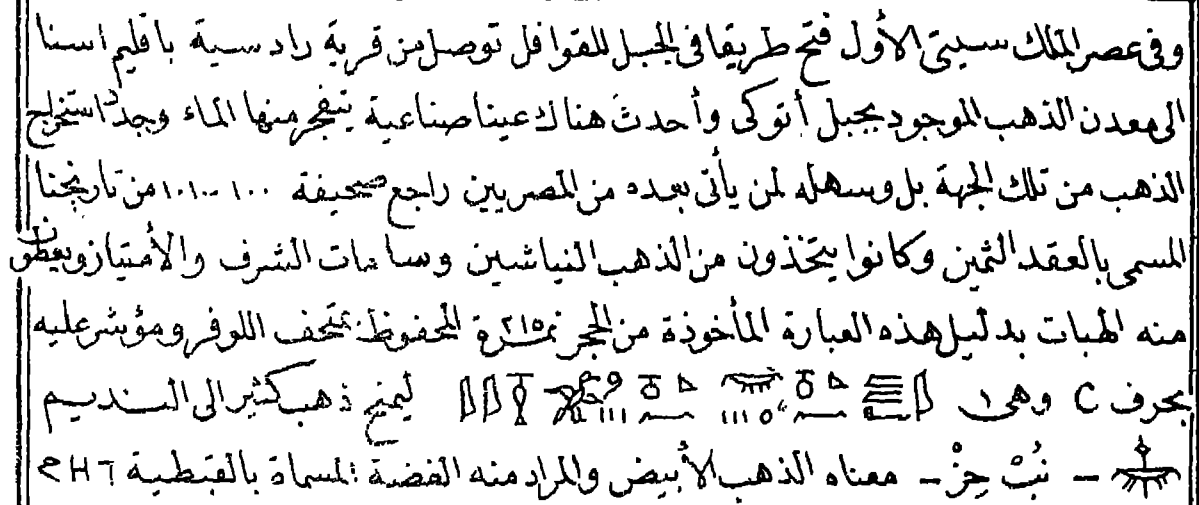 وفى عصر الملك سيتى الأول فتح طريقا فى الجبل للقوافل توصل من قرية رادسية باقليم اسنا
الى معدن الذهب الموجود بجبل أتوكى وأحدث هناك عينا صناعية يتفجر منها الماء وجدد استخراج
الذهب من تلك الجهة بل وسهله لمن يأتى بعده من المصريين راجع صحيفة ١٠٠-١٠١ من تاريخنا
المسمى بالعقد الثمين وكانوا يتخذون من الذهب النياشين وسامات الشرف والأمتياز ويعطون
منه الهبات بدليل هذه العبارة المأخوذة من الحجر نمرة ٢١٥ المحفوظ بمتحف اللوفر ومؤشر عليه
بحرف C وهى ليمنح ذهب كثير الى النديم
— نُبْ حِزْ — معناه الذهب الأبيض والمراد منه الفضة المسماة بالقبطية